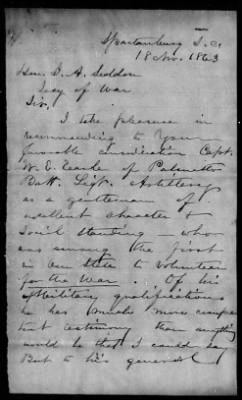 Spartanburg S.C.
18 Nov. 1863
Hon. J. A. Seddon
Secy of War
Sir,
I take pleasure in
recommending to your
favorable consideration Capt.
W. E. Earle of Palmetto
Batt. Light Artillery
as a gentleman of
excellent character &
social standing — who
was among the first
in our state to volunteer
for the war. Of his
Military qualifications
he has much more
testimony than anything
would be that I could say
But to his general